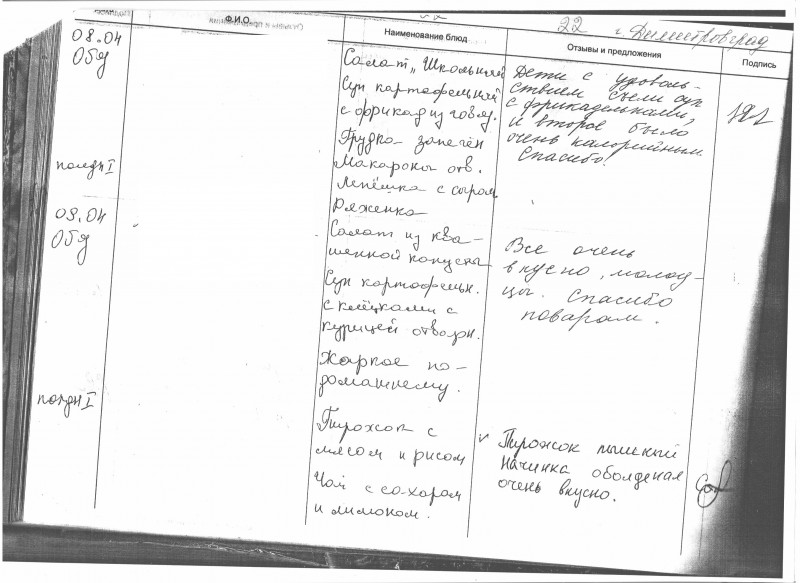 22 г. Димитровград
Ф.И.О.
Наименование блюд
Отзывы и предложения
Подпись
08.04
Обед
Салат „Школьный
Суп картофельный
с фрикад из говяд.
Грудка запечён
Макароны отв.
полдн I
Лепёшка с сыром
Ряженка
Дети с удоволь-
ствием съели суп
с фрикадельками,
и второе было
очень калорийным.
Спасибо!
09.04
Обед
Салат из ква-
шенной капусты
Суп картофельн.
с клёцками с
курицей отварн.
Жаркое по-
домашнему.
Все очень
вкусно, молод-
цы. Спасибо
поварам.
полдн I
Пирожок с
мясом и рисом
Чай с сахаром
и лимоном.
Пирожок пышный
начинка обалденая
очень вкусно.